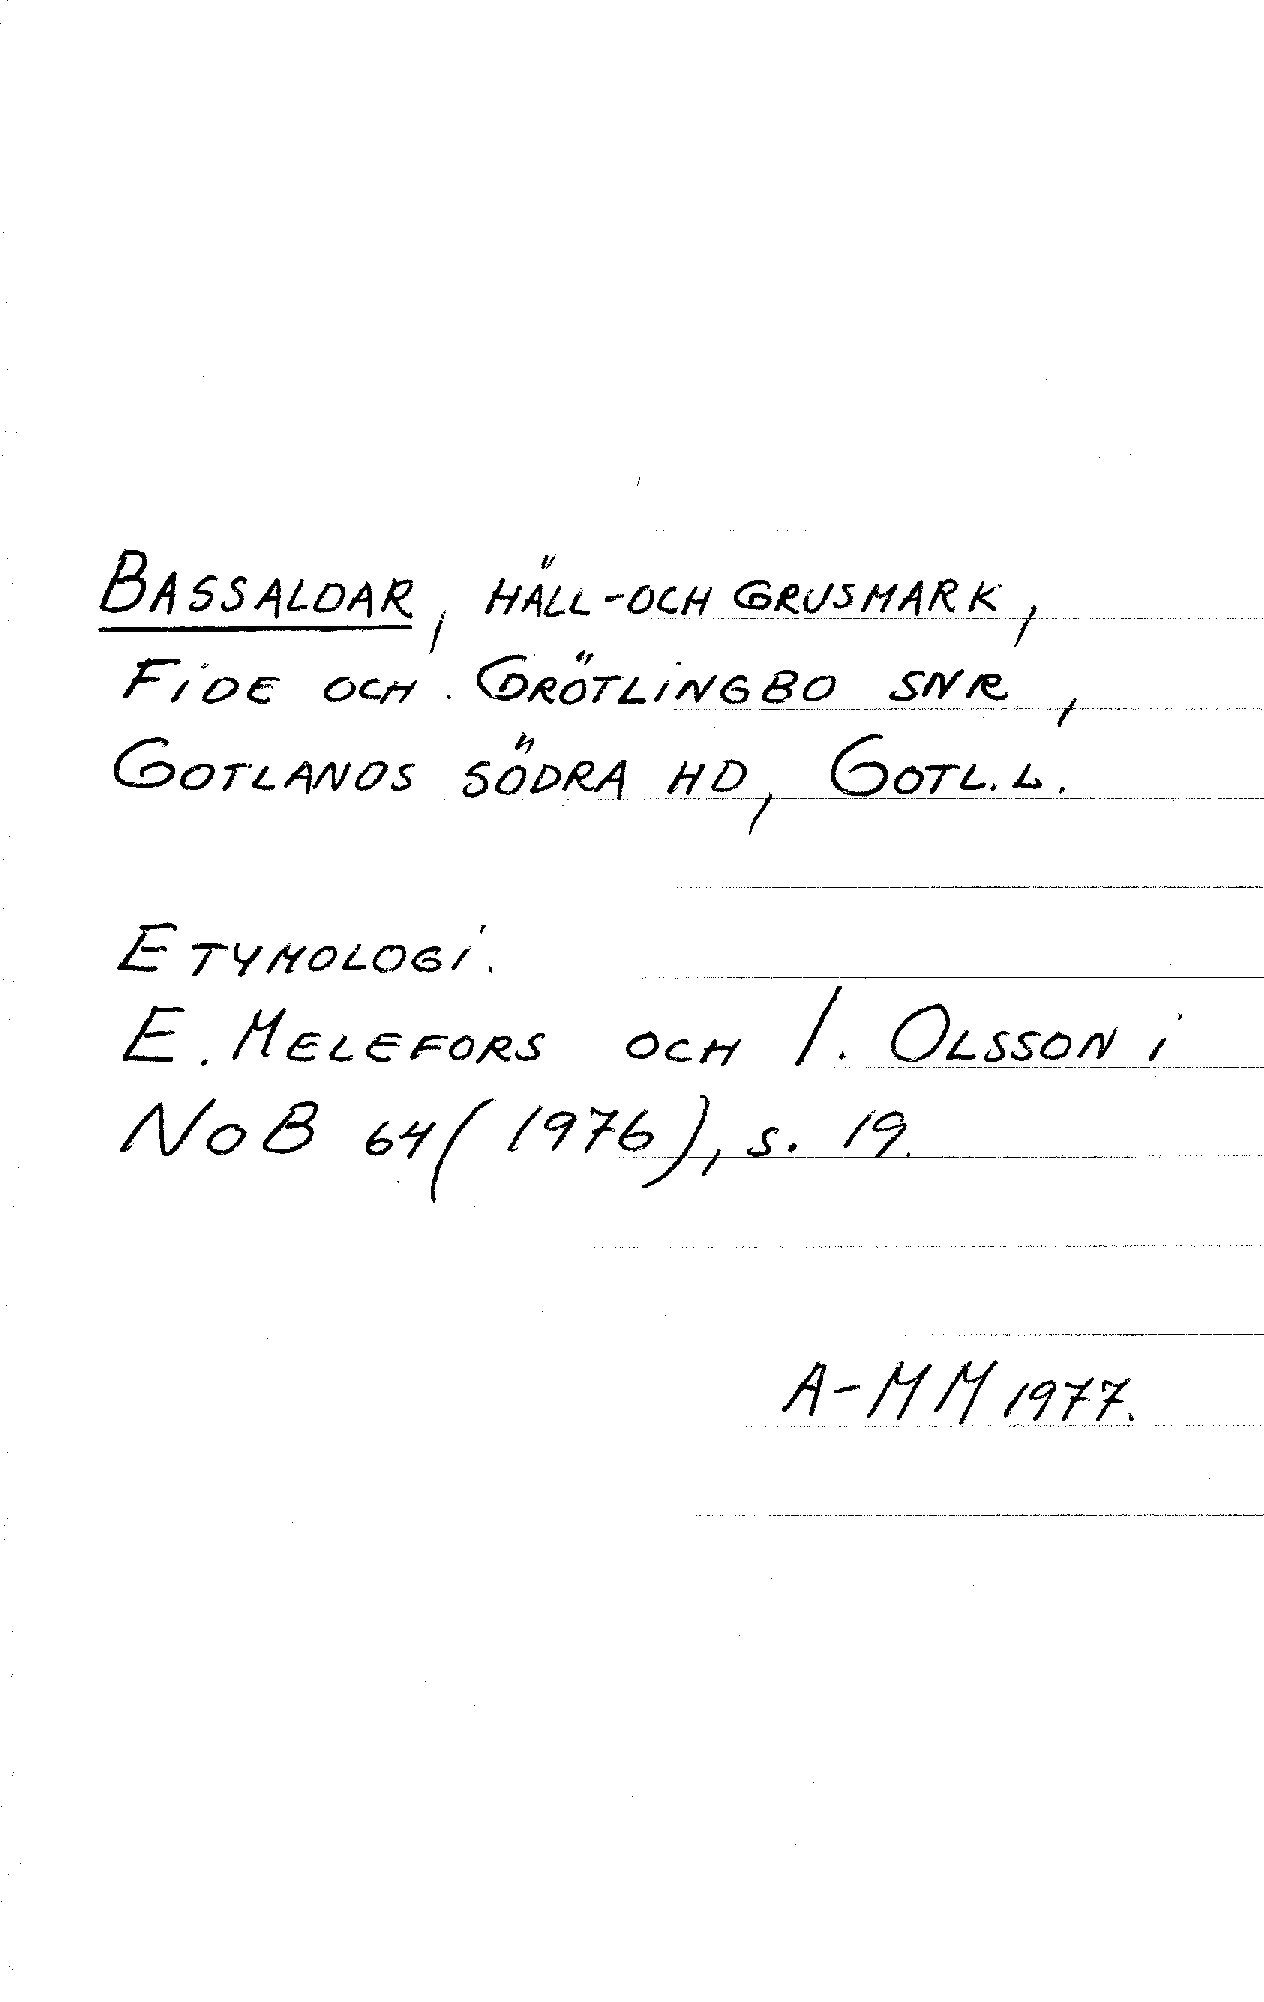 BASSALDAR, HÄLL-OCH GRUSMARK,
FIDE OCH GRÖTLINGBO SNR,
GOTLANDS SÖDRA HD, GOTL.L.
ETYMOLOGI.
E. MELEFORS OCH I. OLSSON i
NoB 64(1976), s. 19.
A-MM 1977.